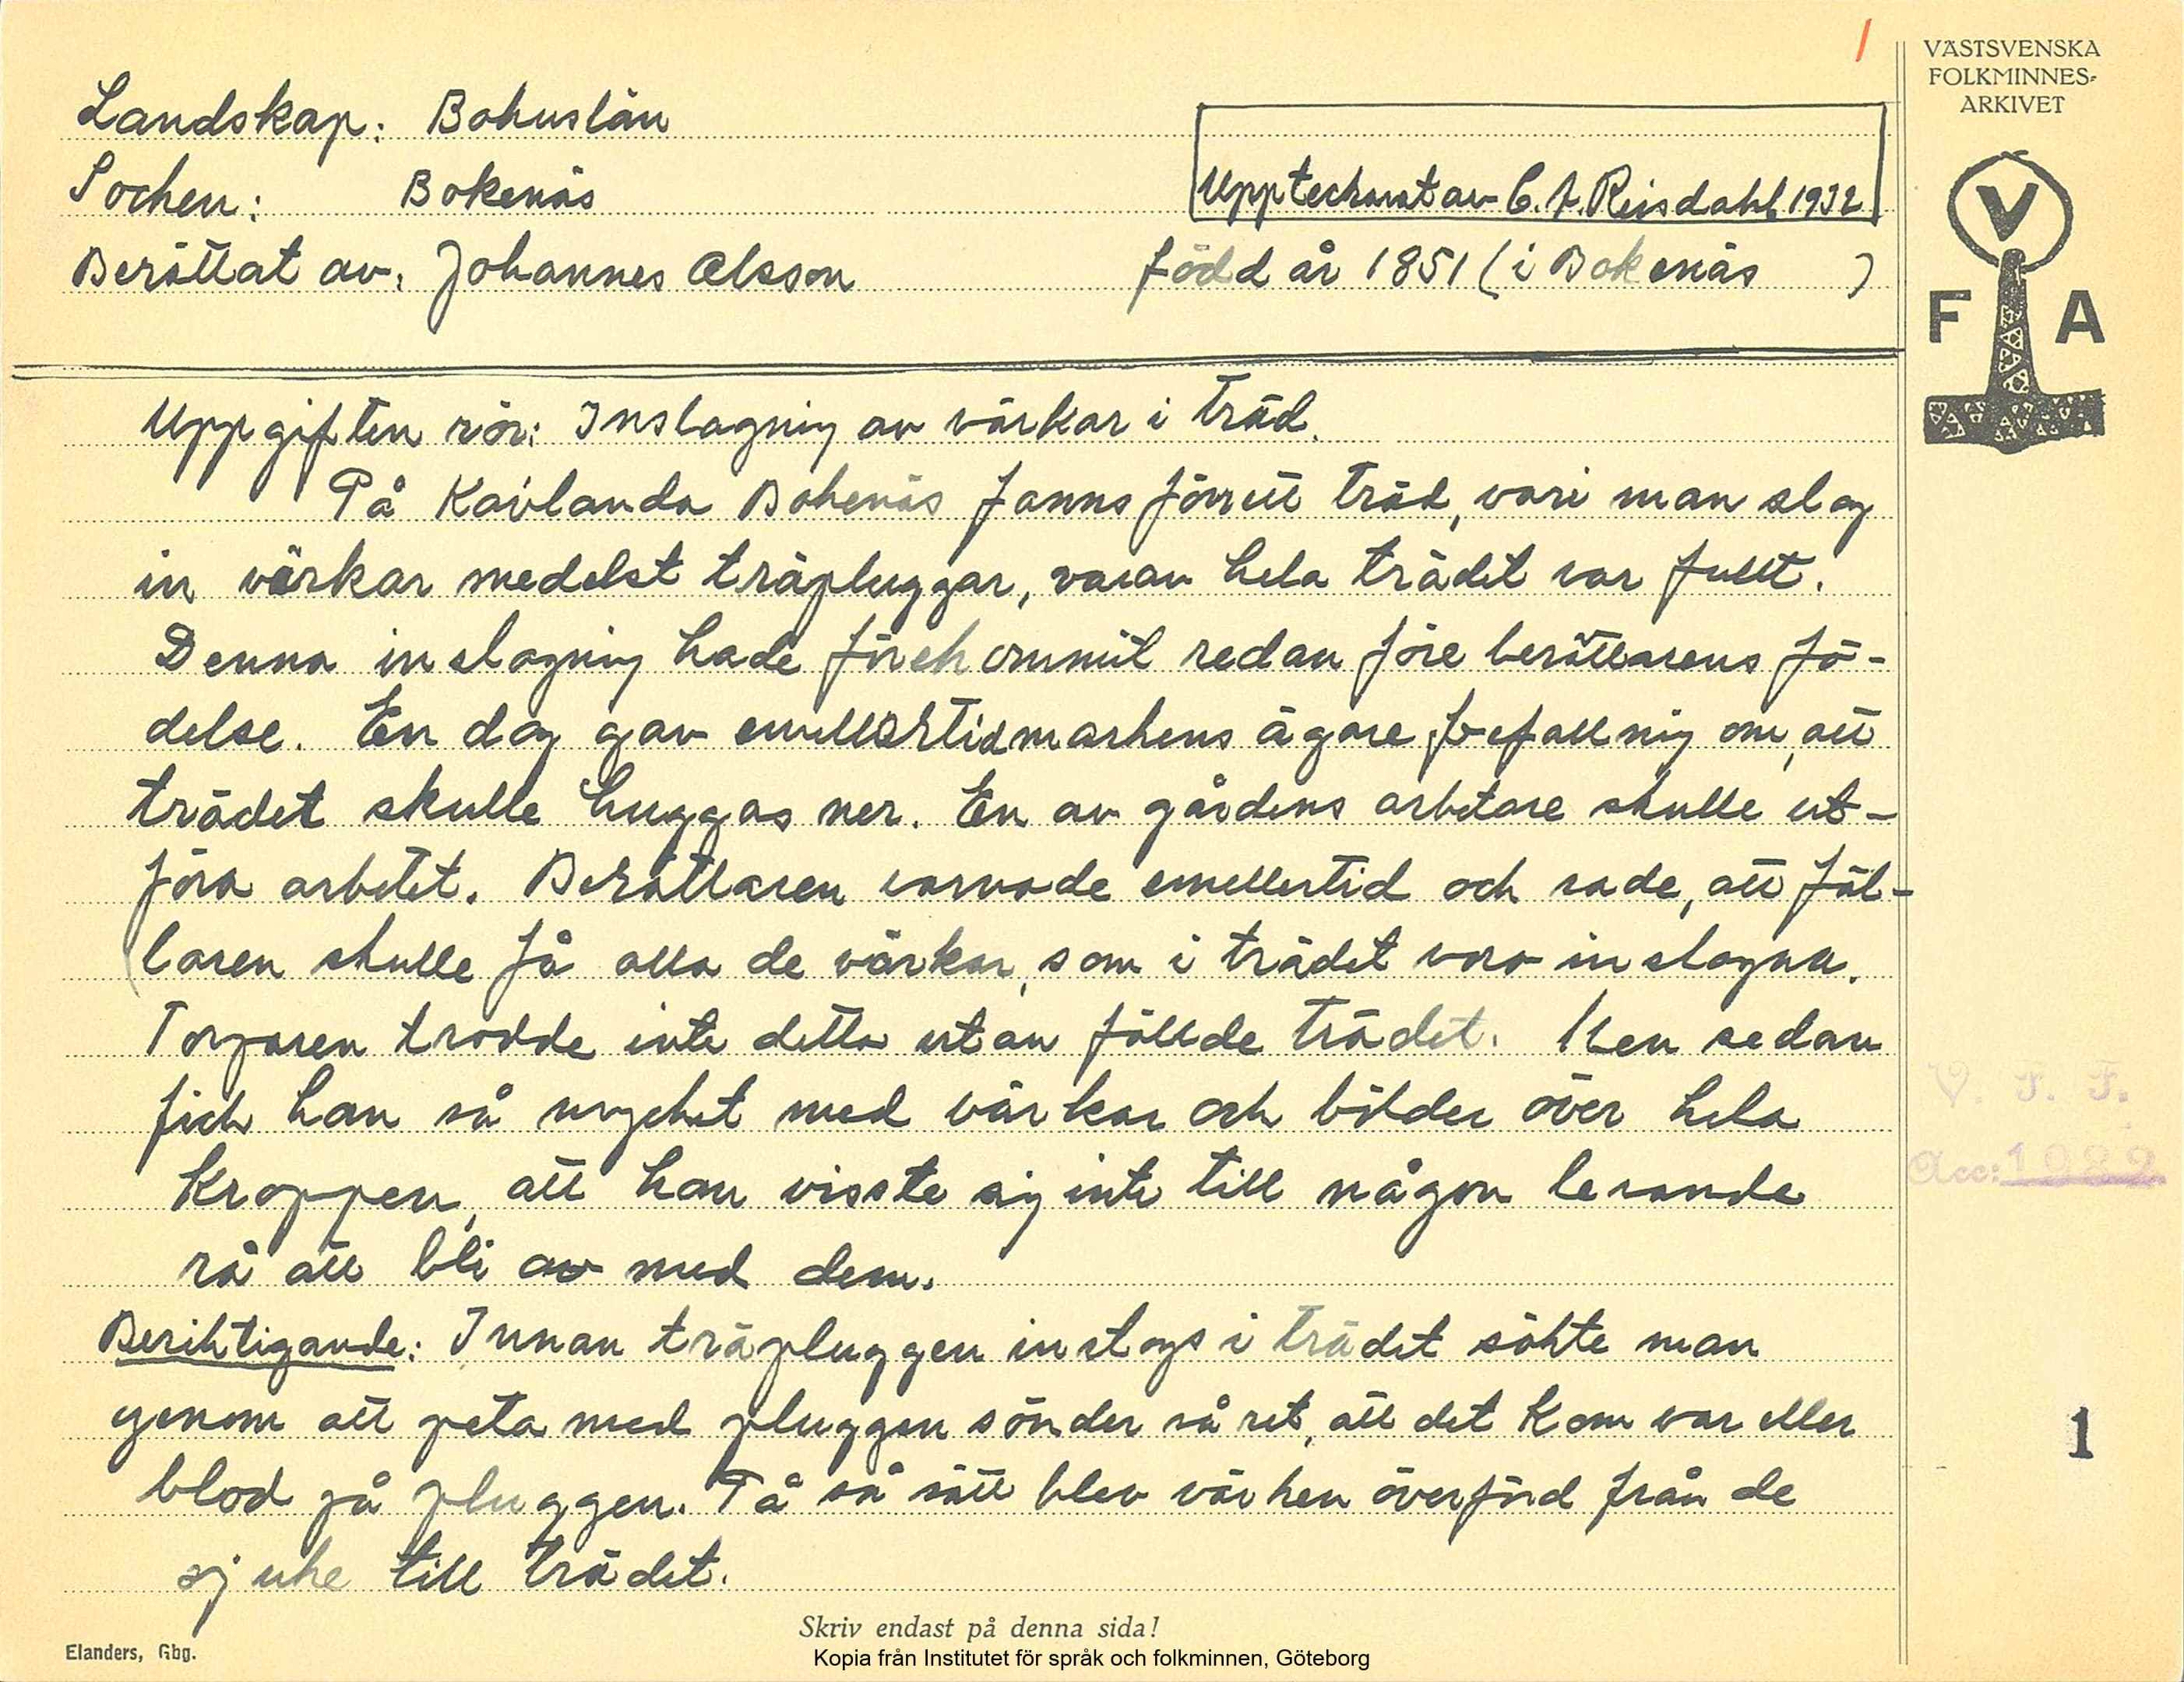 1
VÄSTSVENSKA
FOLKMINNES-
ARKIVET
V
F A
Landskap: Bohuslän
Socken: Bokenäs
Upptecknat av C. A. Reisdahl 1932
Berättat av: Johannes Olsson född år 1851 (i Bokenäs )
Uppgiften rör: Inslagning av värkar i träd.
På Kavlanda Bokenäs fanns förr ett träd, vari man slog
in värkar medelst träpluggar, varav hela trädet var fullt.
Denna inslagning hade förekommit redan före berättarens fö-
delse. En dag gav emellertid markens ägare befallning om, att
trädet skulle huggas ner. En av gårdens arbetare skulle ut-
föra arbetet. Berättaren varnade emellertid och sade, att fäl-
laren skulle få alla de värkar, som i trädet voro inslagna.
Torparen trodde inte detta utan fällde trädet. Men sedan
fick han så mycket med värkar och bölder över hela
kroppen, att han visste sig inte till någon levande
rå att bli av med dem.
Beriktigande: Innan träpluggen inslogs i trädet sökte man
genom att peta med pluggen sönder såret, att det kom var eller
blod på pluggen. På så sätt blev värken överförd från de
sjuke till trädet.
V. F. F.
Acc: 1982
1
Skriv endast på denna sida!
Elanders, Gbg.
Kopia från Institutet för språk och folkminnen, Göteborg